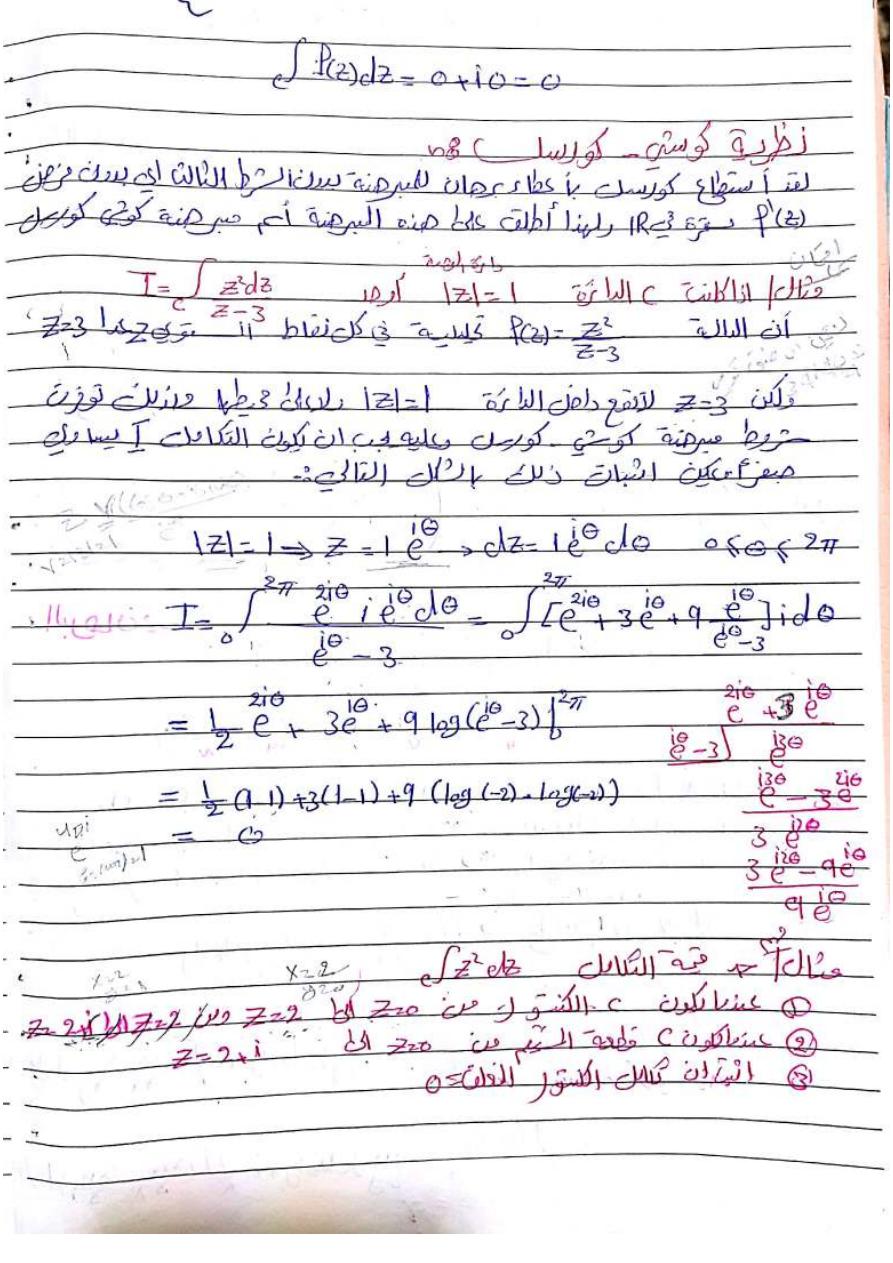 ∫_c f(z)dz = 0 + i0 = 0
نظرية كوشي - كورسات
لقد أستطاع كورسات بأعطاء برهان للمبرهنة بدون الشرط الثالث اي بدون فرض
f'(z) مستمرة في R ولهذا أطلق على هذه المبرهنة أسم مبرهنة كوشي كورسات
مثال/ اذا كانت C الدائرة |z|=1 أوجد I = ∫_c z²dz / z-3
أن الدالة f(z) = z² / z-3 تحليلية في كل نقاط z=3
ولكن z=3 لاتقع داخل الدائرة |z|=1 ولا على محيطها وبذلك توفرت
شروط مبرهنة كوشي - كورسات وعليه يجب ان يكون التكامل I يساوي
صفراً يمكن اثبات ذلك بالشكل التالي :-
|z|=1 ⇒ z = 1 e^{iθ} → dz = 1 e^{iθ} dθ 0≤θ≤2π
I = ₀∫^{2π} e^{2iθ} i e^{iθ} dθ / e^{iθ} - 3 = ₀∫^{2π} [e^{2iθ} + 3e^{iθ} + 9 e^{iθ} / e^{iθ}-3] i dθ
= 1/2 e^{2iθ} + 3e^{iθ} + 9 log(e^{iθ}-3) |₀^{2π}
= 1/2 (1-1) + 3(1-1) + 9 (log(-2) - log(-2))
= 0
e^{2iθ} + 3e^{iθ}
e^{iθ}-3 e^{i3θ}
e^{i3θ} - 3e^{2iθ}
3 e^{i2θ}
3 e^{i2θ} - 9e^{iθ}
9e^{iθ}
مثال قيمة التكامل ∫_c z² dz
x=2
① عندما يكون C الكنتور من z=0 الى z=2 ومن z=2 الى z=2+i
② عندما يكون C قطعة المستقيم من z=0 الى z=2+i
③ اثبت ان تكامل الكنتور المغلق = 0